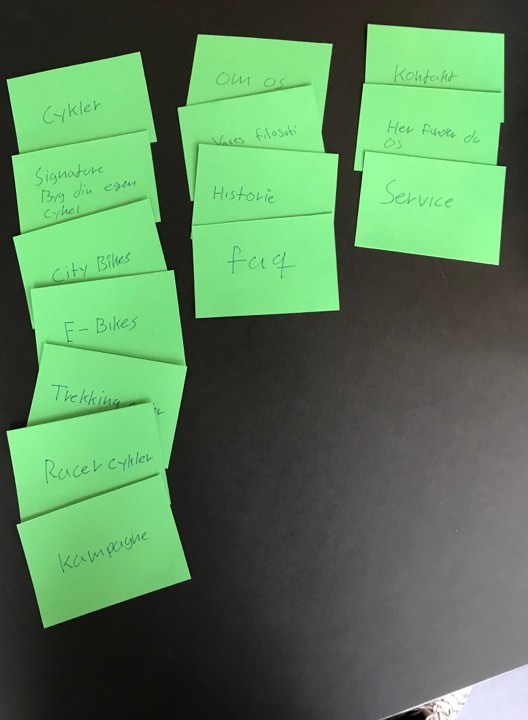 Cykler
Signature
Byg din egen
cykel
City Bikes
E-Bikes
Trekking
Racer cykler
Kampagne
Om os
Vores filosofi
Historie
faq
Kontakt
Her finder du
os
Service